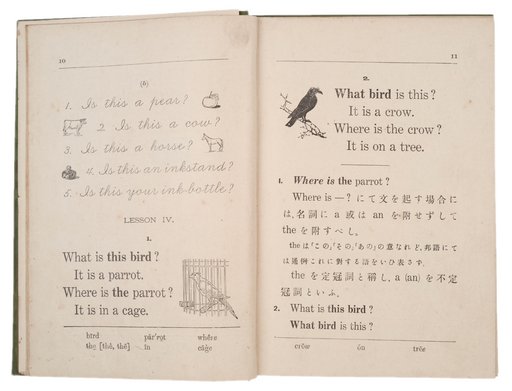 10
(b)
1. Is this a pear?
2. Is this a cow?
3. Is this a horse?
4. Is this an inkstand?
5. Is this your ink-bottle?
LESSON IV.
1.
What is this bird?
It is a parrot.
Where is the parrot?
It is in a cage.
bĭrd păr'rọt whêre
the [thē, thĕ] in cāġe
11
2.
What bird is this?
It is a crow.
Where is the crow?
It is on a tree.
1. Where is the parrot?
Where is —? にて文を起す場合に
は、名詞に a 或は an を附せずして
the を附すべし。
the は「この」「その」「あの」の意なれど、邦語にて
は通例これに對する語をいひ表さず。
the を定冠詞と稱し、a (an) を不定
冠詞といふ。
2. What is this bird?
What bird is this?
crōw ŏn trēe